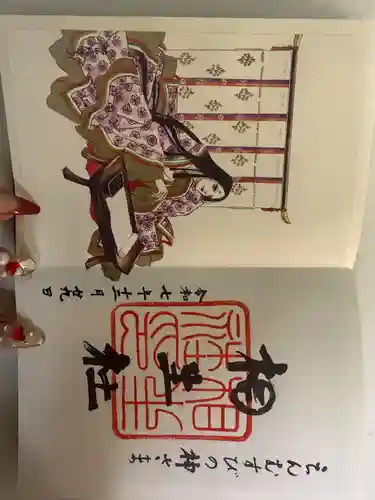 えんむすびの神さま
相生社
令和七年十二月日